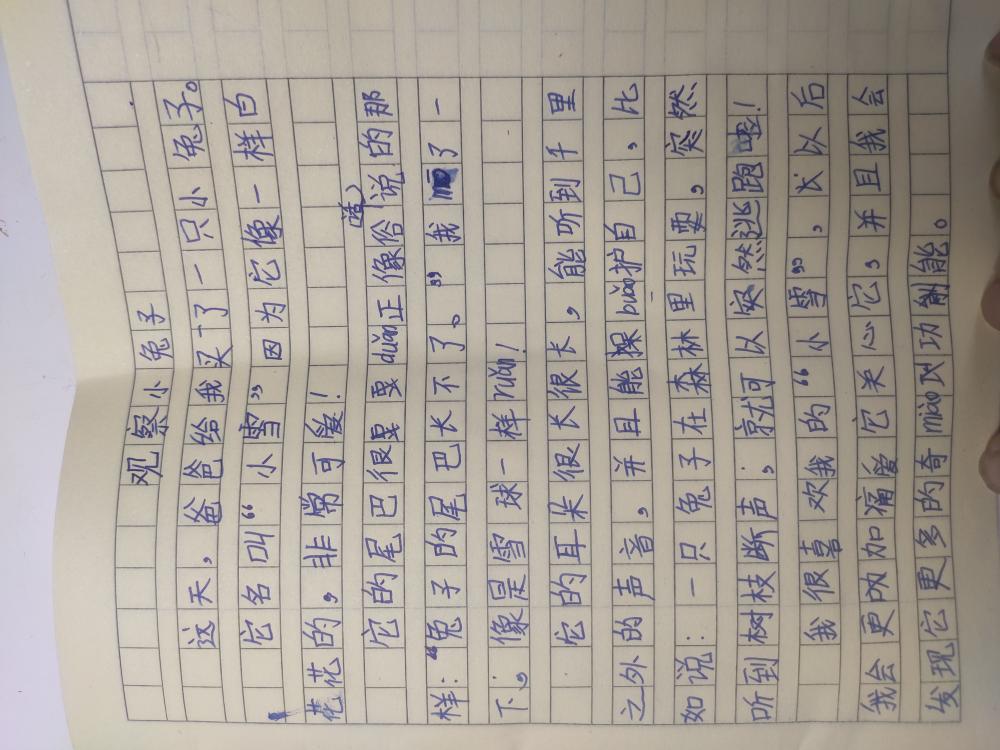 观察小兔子
这天，爸爸给我买了一只小兔子。
它名叫“小雪”因为它像一样白
花花的，非常可爱！
它的尾巴很duǎn正像俗(话)说的那
样：“兔子的尾巴长不了。”我了一
下；像是雪球一样ruǎn！
它的耳朵很长很长，能听到千里
之外的声音，并且能躲bǎo护自己，比
如说：一只兔子在森林里玩耍，突然
听到树枝断声；就可以突然逃跑啦！
我很喜欢我的“小雪”，长以后
我会更加痛爱它关心它，并且我会
发现它更多的奇miào功能。